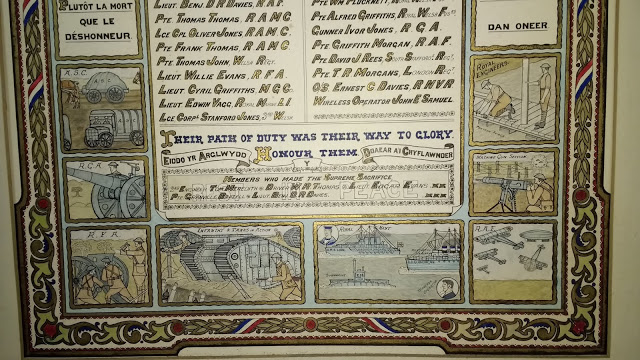 PLUTÔT LA MORT
QUE LE
DÉSHONNEUR.
LIEUT. BENJ. D R DAVIES, R.A.F.
PTE THOMAS THOMAS, R A M C
LCE CPL OLIVER JONES, R A M C
PTE FRANK THOMAS, R A M C
PTE THOMAS JOHN, WELSH REGT.
LIEUT WILLIE EVANS, R F A
LIEUT CYRIL GRIFFITHS, M G C
LIEUT EDWIN VAGG, R L I
LCE CORPL STANFORD JONES,
PTE WM PLUCKNETT,
PTE ALFRED GRIFFITHS, ROYAL WELSH
GUNNER IVOR JONES, R G A
PTE GRIFFITH MORGAN, R.A.F.
PTE DAVID J REES, REGT.
PTE T R MORGANS, LONDON REGT.
O.S. ERNEST G DAVIES, R N V R
WIRELESS OPERATOR JOHN E SAMUEL
DAN ONEER.
A.S.C.
ROYAL ENGINEERS
THEIR PATH OF DUTY WAS THEIR WAY TO GLORY.
EIDDO YR ARGLWYDD HONOUR THEM DDAEAR A'I CHYFLAWNDER
MEMBERS WHO MADE THE SUPREME SACRIFICE
2ND ENGINEER TOM MEREDITH DRIVER W R THOMAS LIEUT EDGAR EVANS
PTE LIEUT BENJ D R DAVIES
R G A
MACHINE GUN SECTION
R.F.A.
ENTRAINING A TANK IN ACTION
ROYAL NAVY
R.A.F.